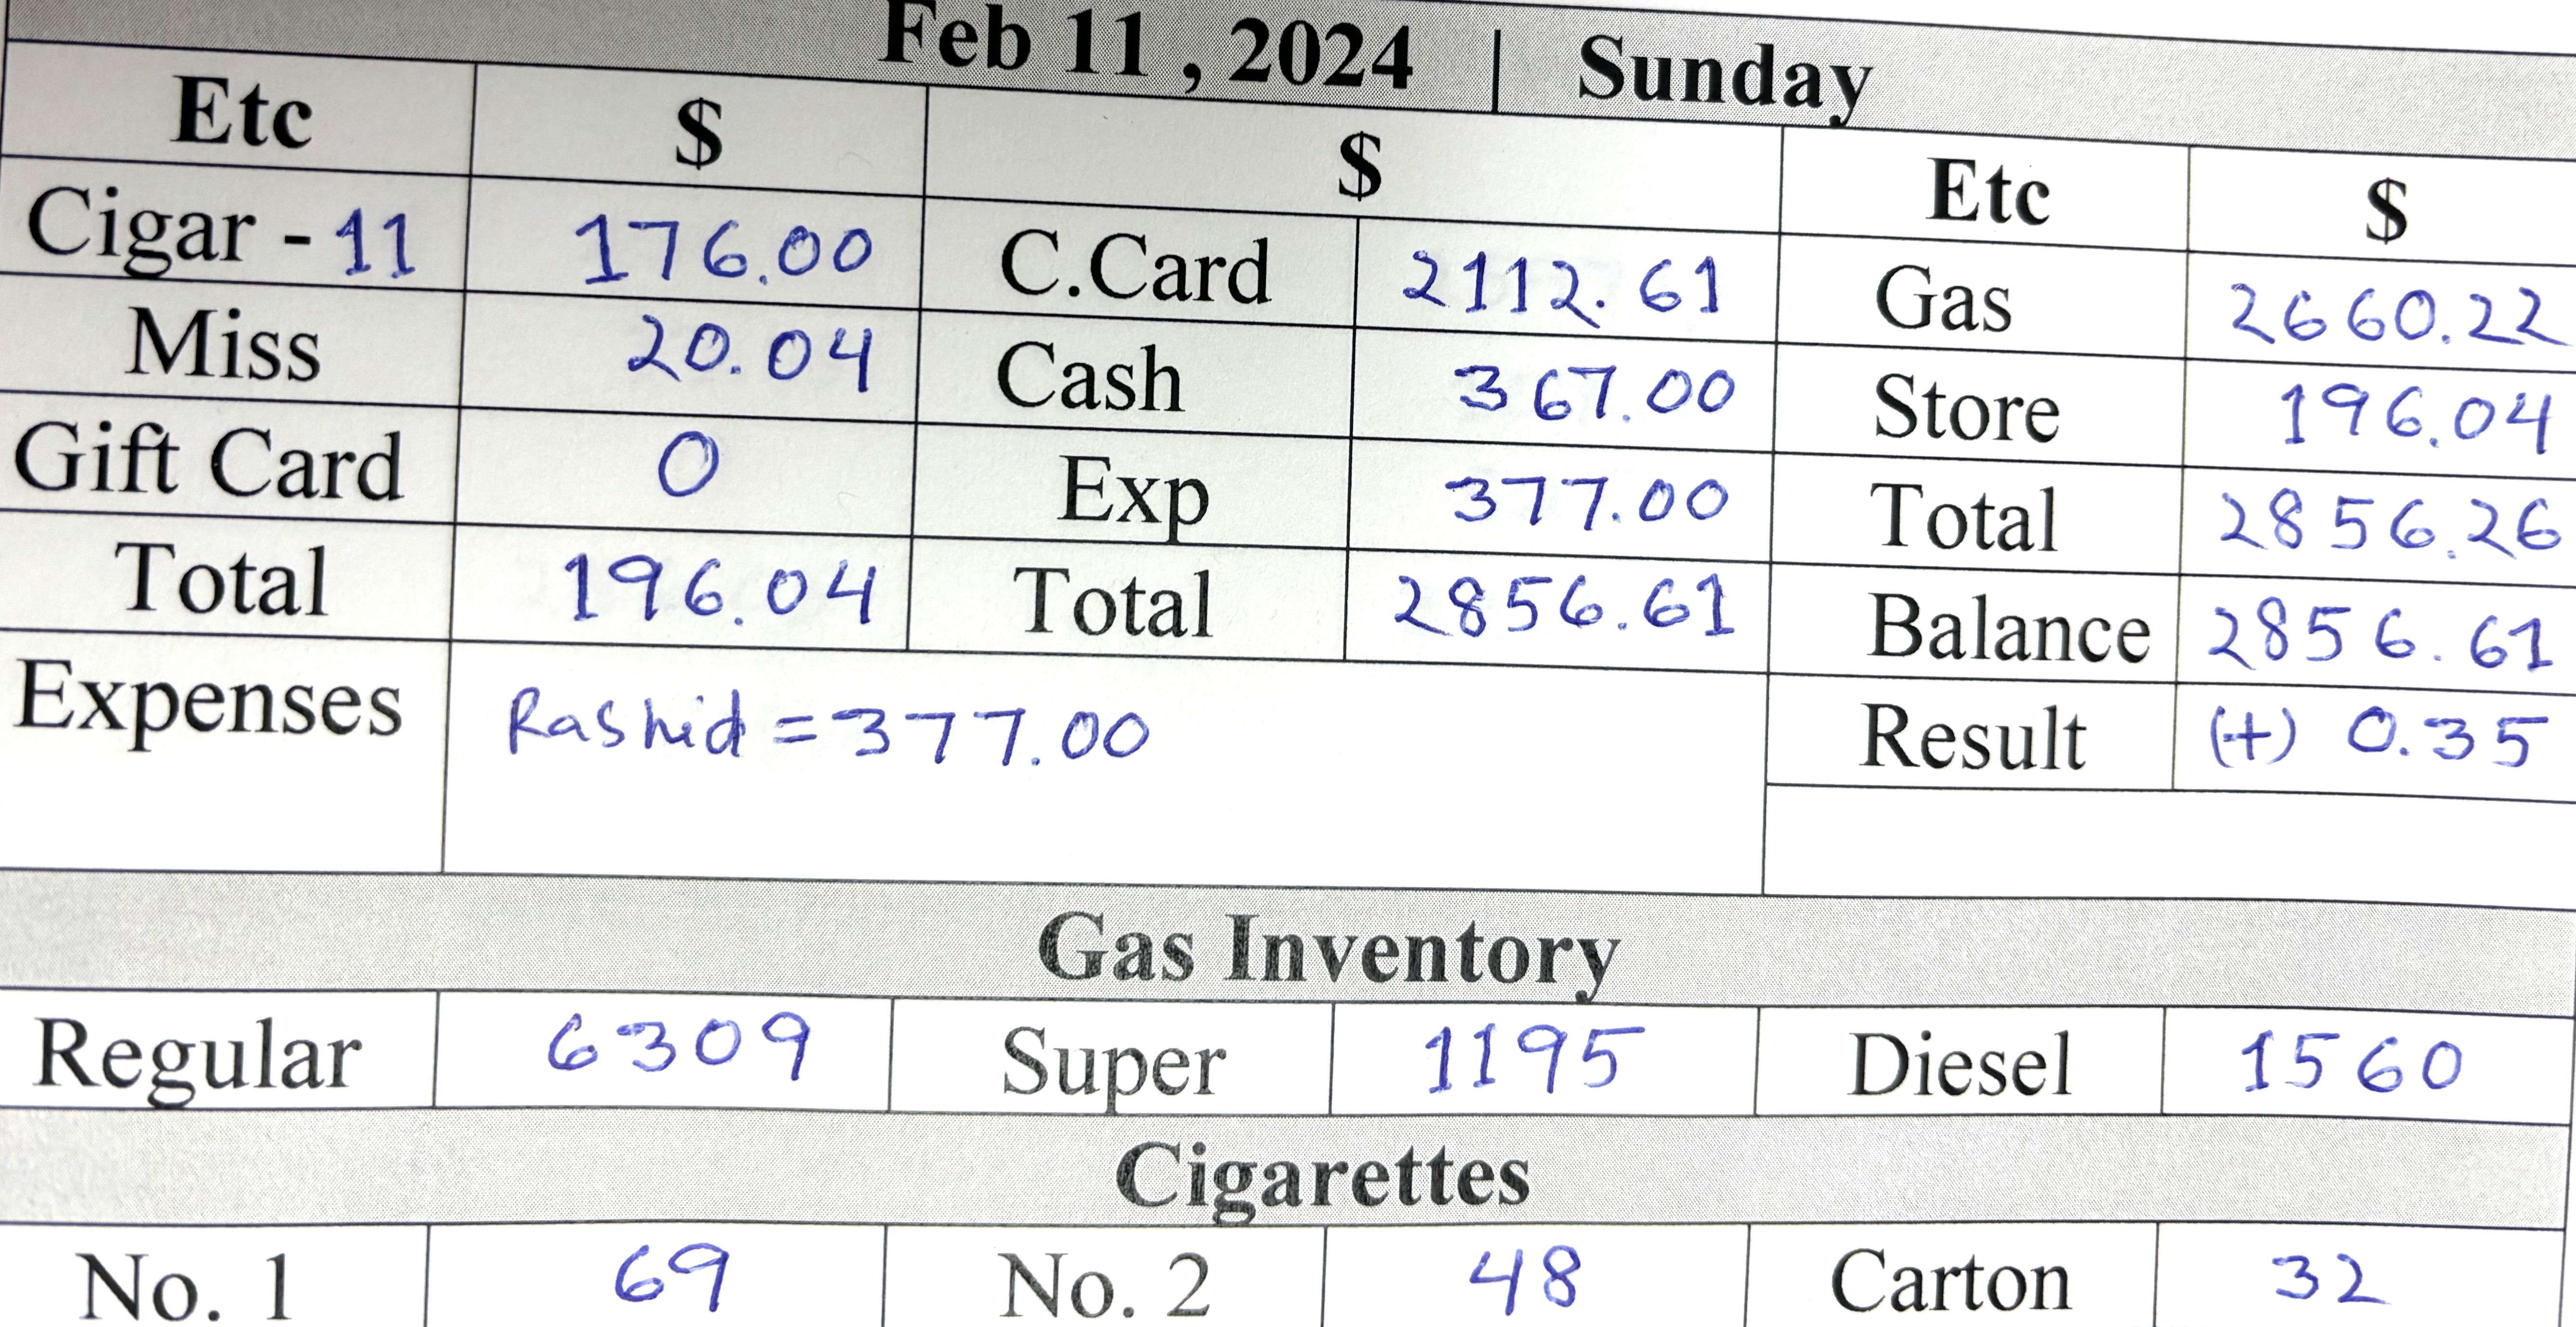 Feb 11 , 2024 | Sunday
Etc $ $ Etc $
Cigar - 11 176.00 C.Card 2112.61 Gas 2660.22
Miss 20.04 Cash 367.00 Store 196.04
Gift Card 0 Exp 377.00 Total 2856.26
Total 196.04 Total 2856.61 Balance 2856.61
Expenses Rashid = 377.00 Result (+) 0.35
Gas Inventory
Regular 6309 Super 1195 Diesel 1560
Cigarettes
No. 1 69 No. 2 48 Carton 32